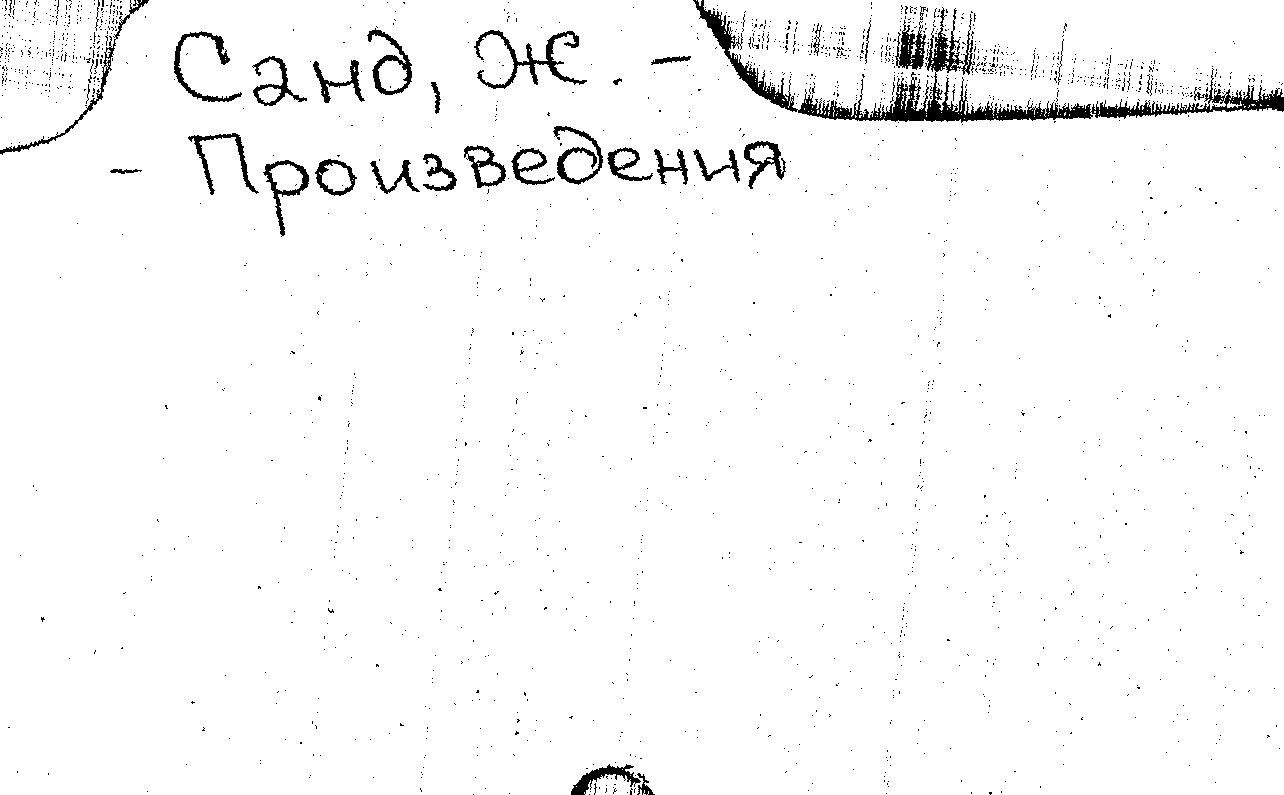 Санд, Ж. -
- Произведения